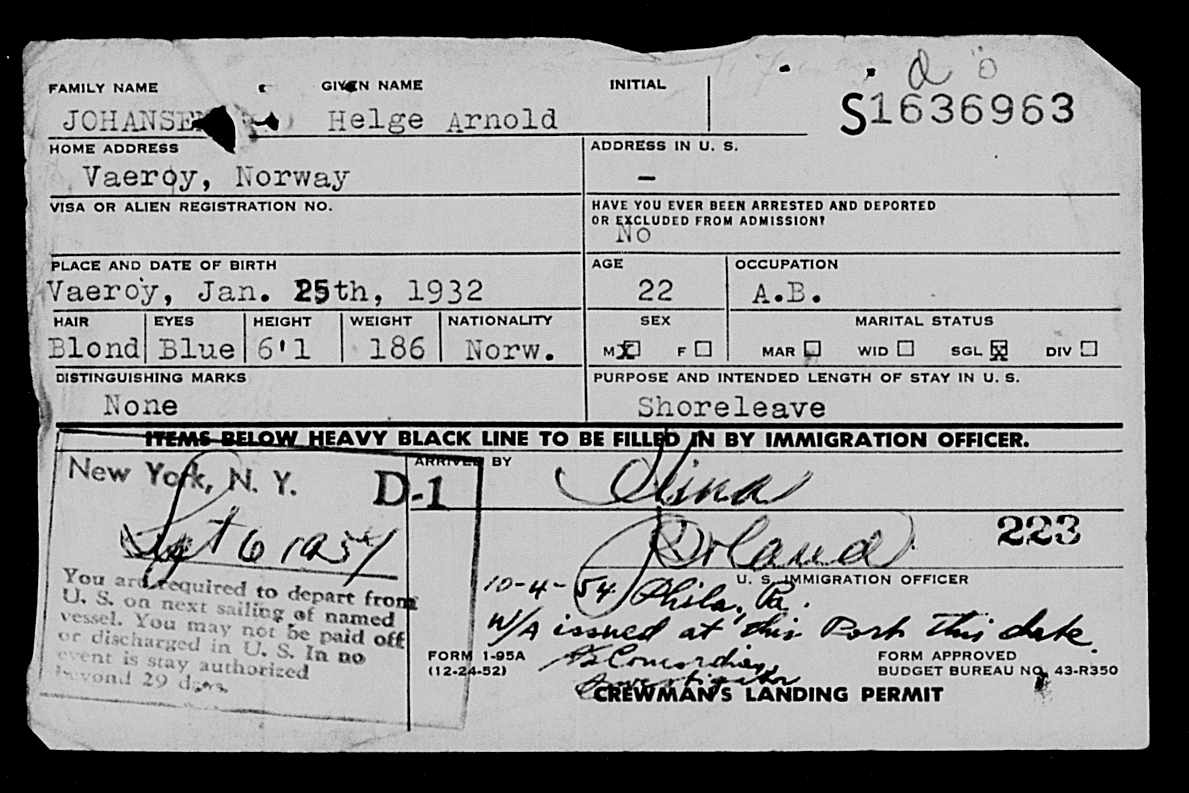 FAMILY NAME GIVEN NAME INITIAL
JOHANSE Helge Arnold S1636963
HOME ADDRESS ADDRESS IN U. S.
Vaeroy, Norway –
VISA OR ALIEN REGISTRATION NO. HAVE YOU EVER BEEN ARRESTED AND DEPORTED
OR EXCLUDED FROM ADMISSION?
No
PLACE AND DATE OF BIRTH AGE OCCUPATION
Vaeroy, Jan. 25th, 1932 22 A.B.
HAIR EYES HEIGHT WEIGHT NATIONALITY SEX MARITAL STATUS
Blond Blue 6'1 186 Norw. M X F MAR WID SGL X DIV
DISTINGUISHING MARKS PURPOSE AND INTENDED LENGTH OF STAY IN U. S.
None Shoreleave
ITEMS BELOW HEAVY BLACK LINE TO BE FILLED IN BY IMMIGRATION OFFICER.
New York, N. Y. D-1 ARRIVED BY
6 1954 223
U. S. IMMIGRATION OFFICER
You are required to depart from
U. S. on next sailing of named
vessel. You may not be paid off
or discharged in U. S. In no
event is stay authorized
beyond 29 days.
10-4-54 Phila, Pa.
W/A issued at this Port this date.
Investigator
FORM I-95A FORM APPROVED
(12-24-52) BUDGET BUREAU NO. 43-R350
CREWMAN'S LANDING PERMIT